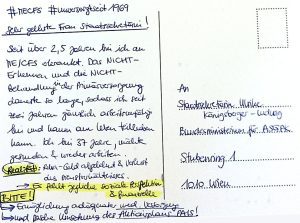 #MECFS #unversorgtseit1969
Sehr geehrte Frau Staatssekretärin!
Seit über 2,5 Jahren bin ich an
ME/CFS erkrankt. Das NICHT-
Erkennen und die NICHT-
Behandlung der Akutversorgung
dauerte so lange, sodass ich seit
zwei Jahren gänzlich arbeitsunfähig
bin und kaum am Leben teilhaben
kann. Ich bin 37 Jahre, möchte
gesunden & wieder arbeiten.
REALITÄT: Reha-Geld abgelehnt & Verlust
des Dienstverhältnisses.
→ Es fehlt jegliche soziale Perspektive
& finanzielle
BITTE!
→ Ermöglichung adäquater Versorgung
→ und rasche Umsetzung des Aktionsplans PAIS!
An
Staatssekretärin Ulrike
Königsberger-Ludwig
Bundesministerium für ASGPK
Stubenring 1
1010 Wien